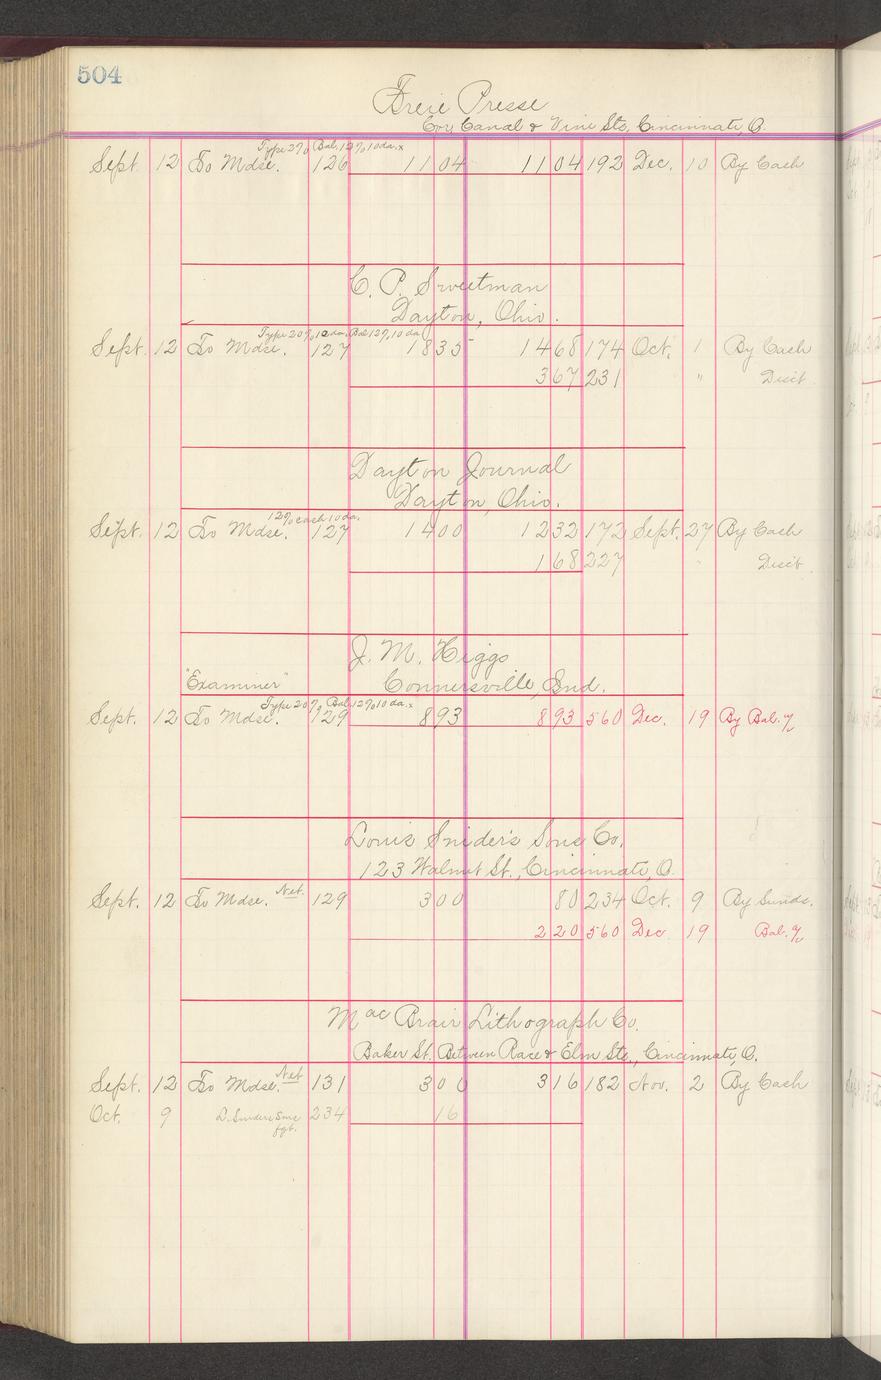 504
Freie Presse
Cor. Canal & Vine Sts, Cincinnati, O.
Type 2% Bal. 12% 10 da. x
Sept. 12 To Mdse. 126 11 04 11 04 192 Dec. 10 By Cash
C. P. Sweetman
Dayton, Ohio.
Type 20% 10 da. Bal 12% 10 da
Sept. 12 To Mdse. 127 18 35 14 68 174 Oct. 1 By Cash
3 67 231 " Disct.
Dayton Journal
Dayton, Ohio.
12% cash 10 da.
Sept. 12 To Mdse. 127 14 00 12 32 172 Sept. 27 By Cash
1 68 227 " Disct.
J. M. Higgs
"Examiner" Connersville, Ind.
Type 20% Bal. 12% 10 da. x
Sept. 12 To Mdse. 129 8 93 8 93 560 Dec. 19 By Bal. %
Louis Snider's Sons Co.
123 Walnut St., Cincinnati, O.
Sept. 12 To Mdse. Net 129 3 00 80 234 Oct. 9 By Sunds.
2 20 560 Dec 19 Bal. %
Mac Brair Lithograph Co.
Baker St. Between Race & Elm Sts., Cincinnati, O.
Sept. 12 To Mdse. Net 131 3 00 3 16 182 Nov. 2 By Cash
Oct. 9 L. Sniders Sons 234 16
fgt.